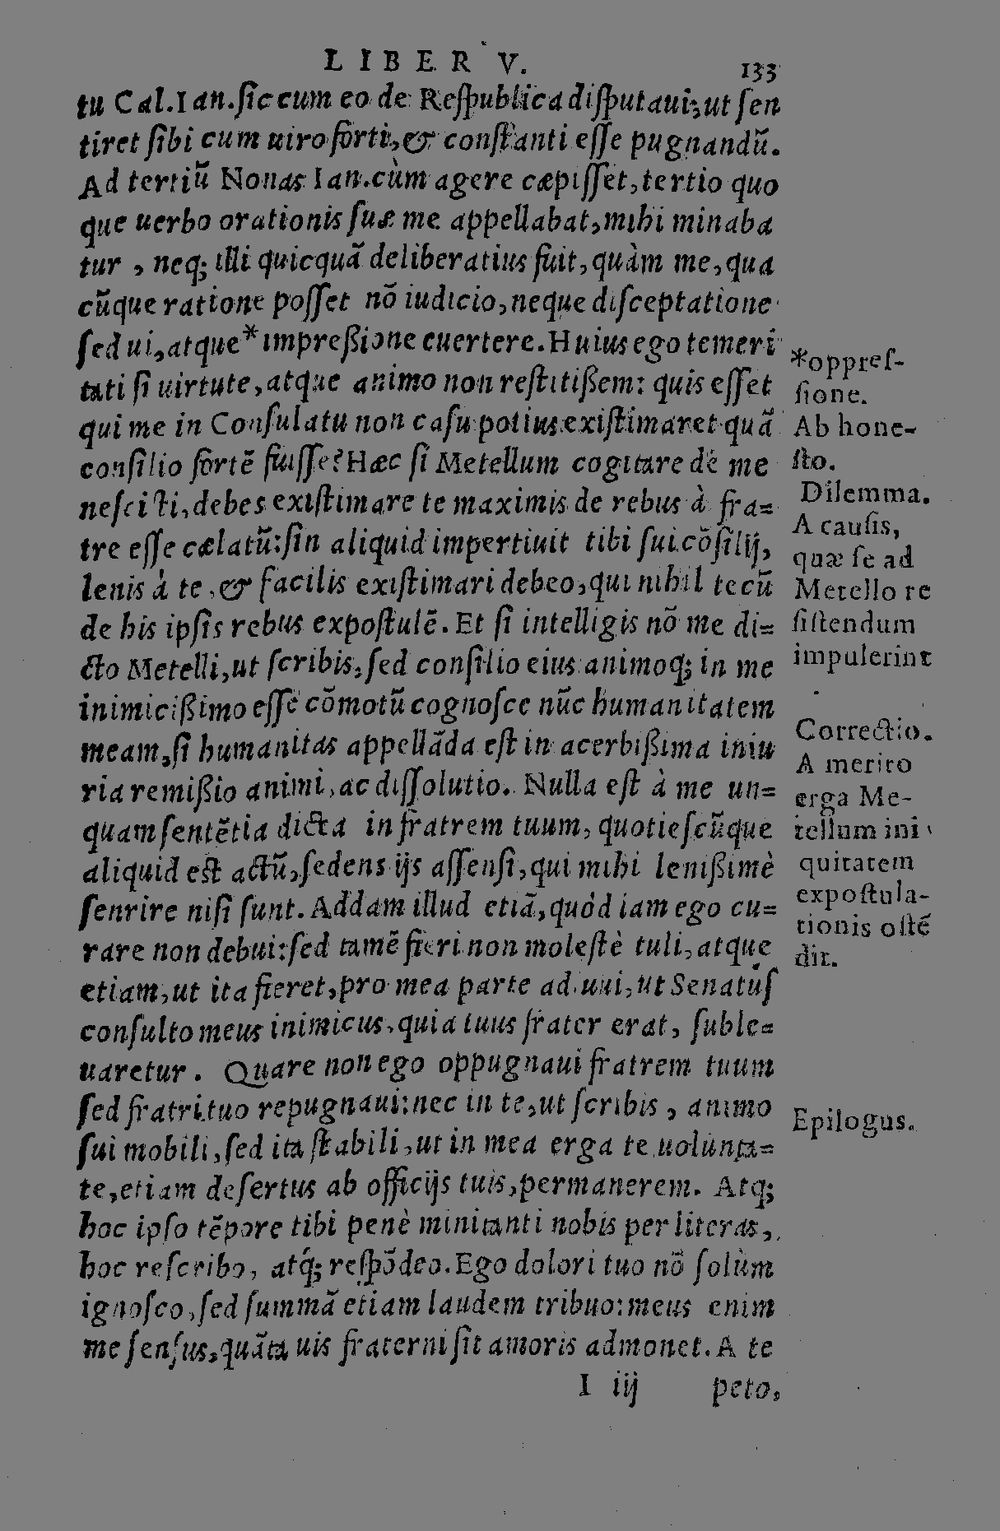 LIBER V. 133
tu Cal. Ian. sic cum eo de Respublica disputaui; ut sen
tiret sibi cum uiro forti, & constanti esse pugnandũ.
Ad tertiũ Nonas Ian. cùm agere cæpisset, tertio quo
que uerbo orationis suæ me appellabat, mihi minaba
tur, neq; illi quicquã deliberatius fuit, quàm me, qua
cũque ratione posset nõ iudicio, neque disceptatione
sed ui, atque * impreßione euertere. Huius ego temeri
tati si uirtute, atque animo non restitißem: quis esset
qui me in Consulatu non casu potius existimaret quã
consilio fortẽ fuisse? Hæc si Metellum cogitare de me
nescisti, debes existimare te maximis de rebus à fra=
tre esse cælatũ: sin aliquid impertiuit tibi sui cõsilij,
lenis à te, & facilis existimari debeo, qui nihil tecũ
de his ipsis rebus expostulẽ. Et si intelligis nõ me di=
cto Metelli, ut scribis, sed consilio eius animoq; in me
inimicißimo esse cõmotũ cognosce nũc humanitatem
meam, si humanitas appellãda est in acerbißima iniu
ria remißio animi, ac dissolutio. Nulla est à me un=
quam sentẽtia dicta in fratrem tuum, quotiescũque
aliquid est actũ, sedens ijs assensi, qui mihi lenißimè
senrire nisi sunt. Addam illud etiã, quòd iam ego cu=
rare non debui: sed tamẽ fieri non molestè tuli, atque
etiam, ut ita fieret, pro mea parte adiuui, ut Senatus
consulto meus inimicus, quia tuus frater erat, suble=
uaretur. Quare non ego oppugnaui fratrem tuum
sed fratri tuo repugnaui: nec in te, ut scribis, animo
sui mobili, sed ita stabili, ut in mea erga te uolunta=
te, etiam desertus ab officijs tuis, permanerem. Atq;
hoc ipso tẽpore tibi penè minitanti nobis per literas,
hoc rescribo, atq́; respõdeo. Ego dolori tuo nõ solùm
ignosco, sed summã etiam laudem tribuo: meus enim
me sensus, quãta uis fraterni sit amoris admonet. A te
I iij peto,
*oppres-
sione.
Ab hone-
sto.
Dilemma.
A causis,
quæ se ad
Metello re
sistendum
impulerint
Correctio.
A merito
erga Me-
tellum ini
quitatem
expostula-
tionis ostẽ
dit.
Epilogus.